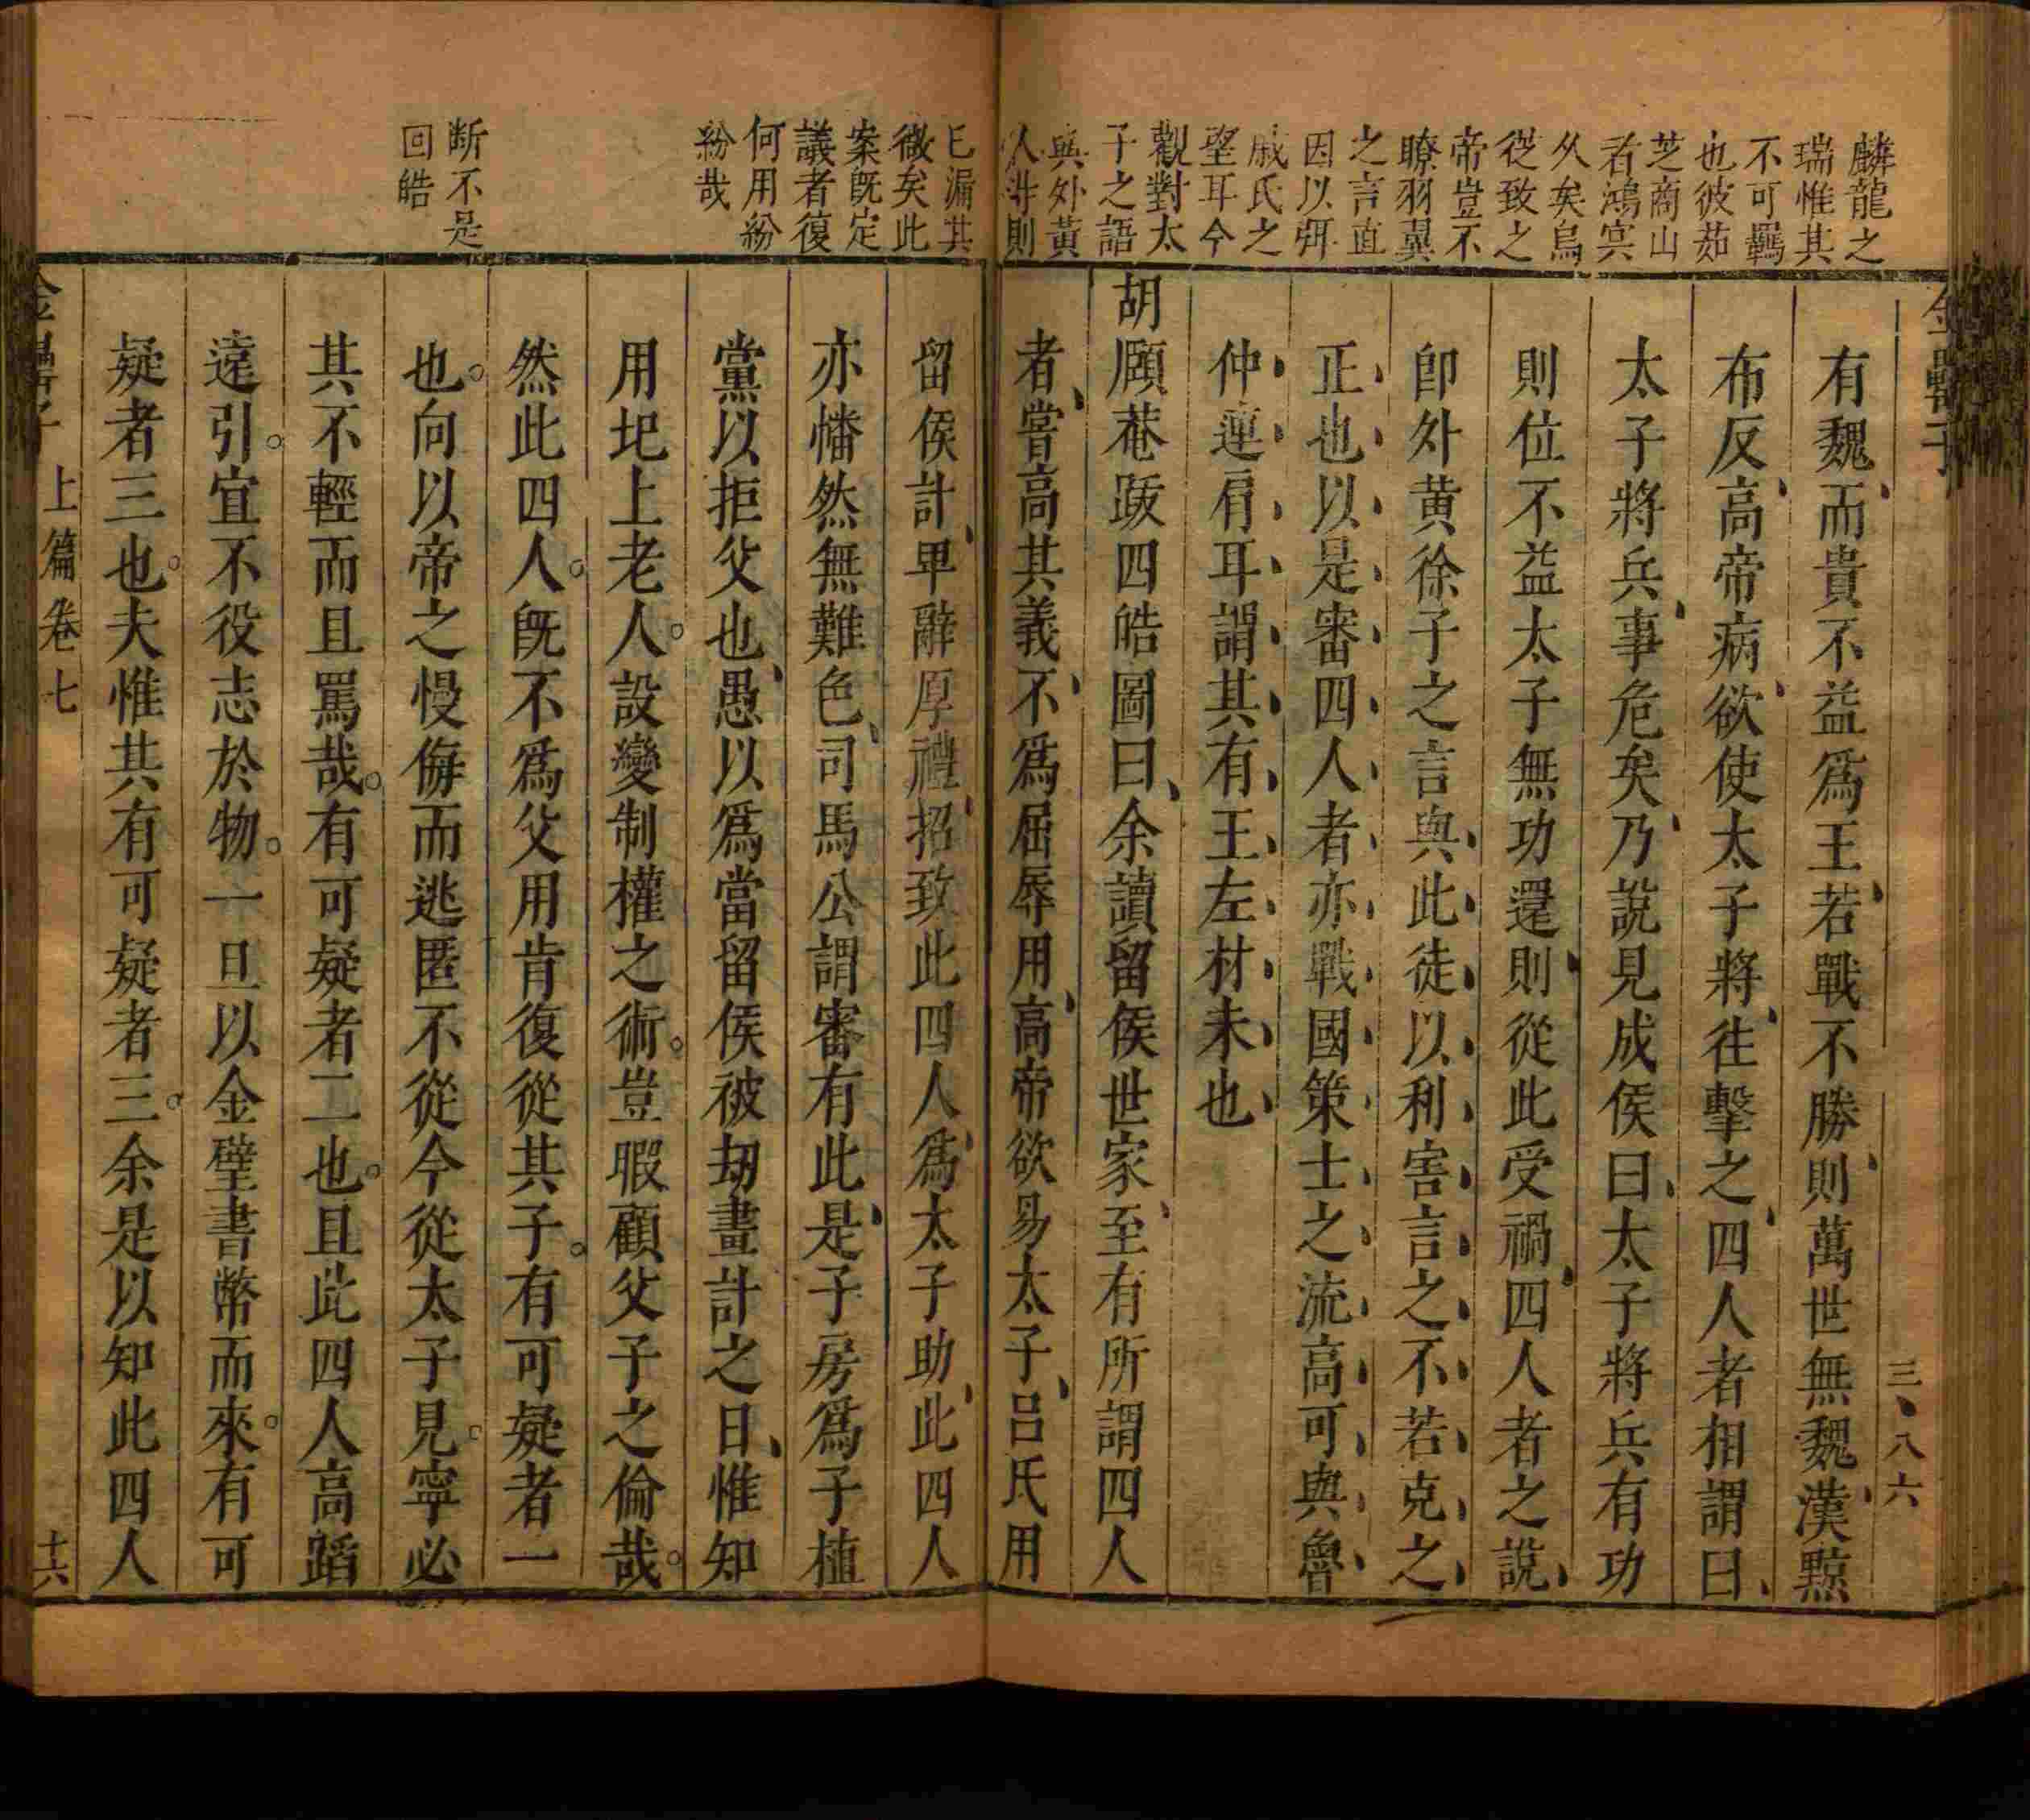 麟龍之
瑞惟其
不可羈
也彼茹
芝商山
若鴻冥
乆矣烏
從致之
帝豈不
瞭羽翼
之言直
因以弭
戚氏之
望耳今
觀對太
子之語
與外黃
人非則
三八六
有魏而貴不益爲王若戰不勝則萬世無魏漢黥
布反高帝病欲使太子將往擊之四人者相謂曰
太子將兵事危矣乃說見成侯曰太子將兵有功
則位不益太子無功還則從此受禍四人者之說
卽外黃徐子之言與此徒以利害言之不若克之
正也以是審四人者亦戰國策士之流高可與魯
仲連肩耳謂其有王左材未也
胡願菴跋四皓圖曰余讀留侯世家至有所謂四人
者嘗高其義不爲屈辱用高帝欲易太子呂氏用
已漏其
微矣此
案旣定
議者復
何用紛
紛哉
斷不是
回皓
留侯計卑辭厚禮招致此四人爲太子助此四人
亦幡然無難色司馬公謂審有此是子房爲子植
黨以拒父也愚以爲當留侯被刼畫計之日惟知
用圯上老人設變制權之術豈暇顧父子之倫哉
然此四人旣不爲父用肯復從其子有可疑者一
也向以帝之慢侮而逃匿不從今從太子見寧必
其不輕而且罵哉有可疑者二也且此四人高蹈
遠引宜不役志於物一旦以金璧書幣而來有可
疑者三也夫惟其有可疑者三余是以知此四人
上篇卷七
十六